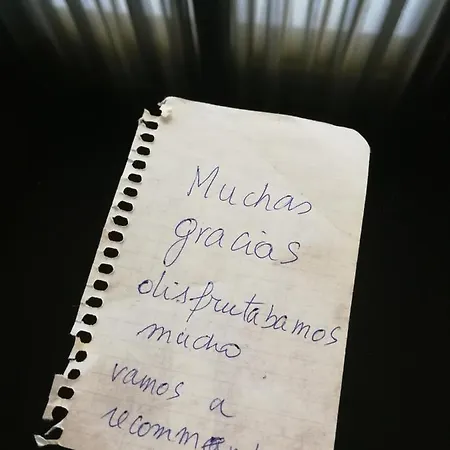 Muchas
gracias
disfrutabamos
mucho
vamos a